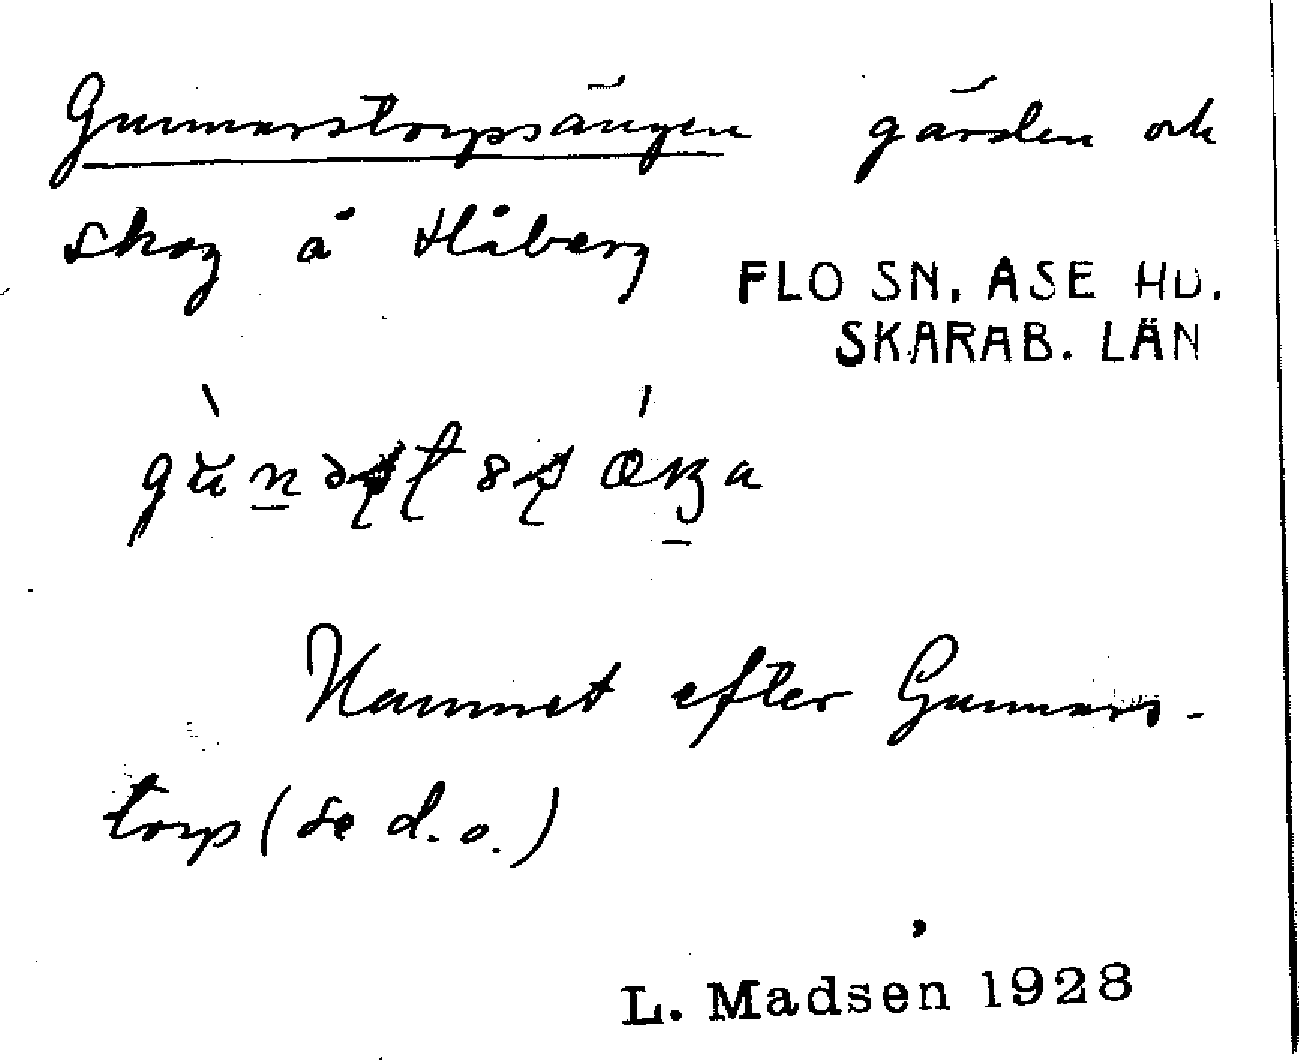 Gunnarstorpsängen gärden och
skog å Håberg
FLO SN. ASE HD.
SKARAB. LÄN
Namnet efter Gunnars-
torp (se d.o.)
L. Madsen 1928